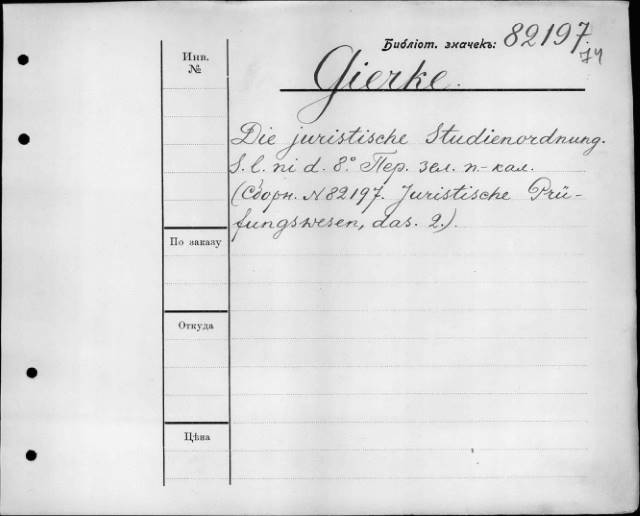 Библіот. значекъ: 82197.
74
Инв.
№
Gierke.
Die juristische Studienordnung.
S. l. ni d. 8° Пер. зел. п-кал.
(Сборн. N 82197. Juristische Prü-
fungswesen, das. 2.)
По заказу
Откуда
Цѣна